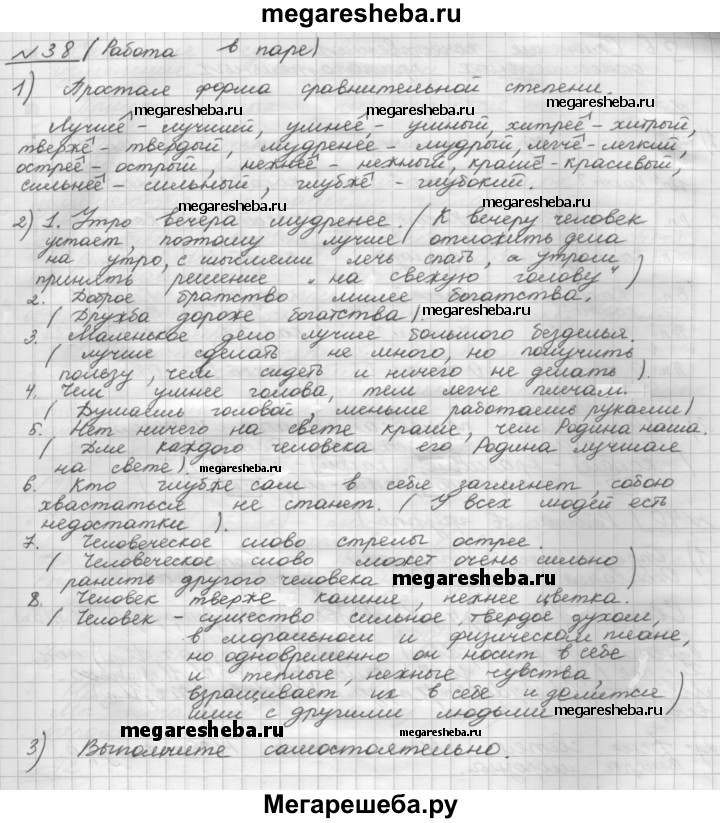 megaresheba.ru
№38 (Работа в паре)
1) Простая форма сравнительной степени.
megaresheba.ru megaresheba.ru megaresheba.ru
Лучше - лучший, умнее, - умный, хитрее - хитрый,
тверже - твердый, мудренее - мудрый, легче - легкий,
острее - острый, нежнее - нежный, краше - красивый,
сильнее - сильный, глубже - глубокий.
megaresheba.ru megaresheba.ru
2) 1. Утро вечера мудренее. (К вечеру человек
устает, поэтому лучше отложить дела
на утро, с мыслями лечь спать, а утром
принять решение "на свежую голову")
2. Доброе братство милее богатства.
(Дружба дороже богатства). megaresheba.ru
3. Маленькое дело лучше большого безделья.
(лучше сделать не много, но получить
пользу, чем сидеть и ничего не делать).
4. Чем умнее голова, тем легче плечам.
(Думаешь головой, меньше работаешь руками)
5. Нет ничего на свете краше, чем Родина наша.
(Для каждого человека его Родина лучшая
на свете). megaresheba.ru
6. Кто глубже сам в себя заглянет, собою
хвастаться не станет. (У всех людей есть
недостатки).
7. Человеческое слово стрелы острее.
(Человеческое слово может очень сильно
ранить другого человека) megaresheba.ru
8. Человек тверже камня, нежнее цветка.
(Человек - существо сильное, твердое духом,
в моральном и физическом плане,
но одновременно он носит в себе
и теплые, нежные чувства,
взращивает их в себе и делится
ими с другими людьми) megaresheba.ru
megaresheba.ru
3) Выполните самостоятельно.
Мегарешеба.ру